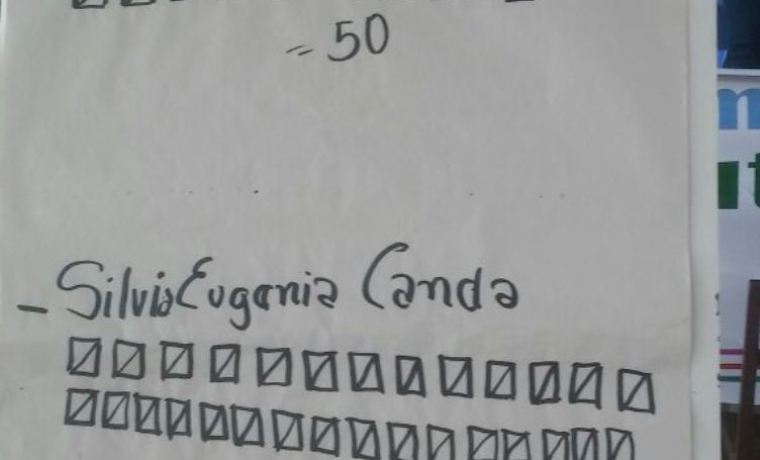 = 50
- Silvia Eugenia Canda